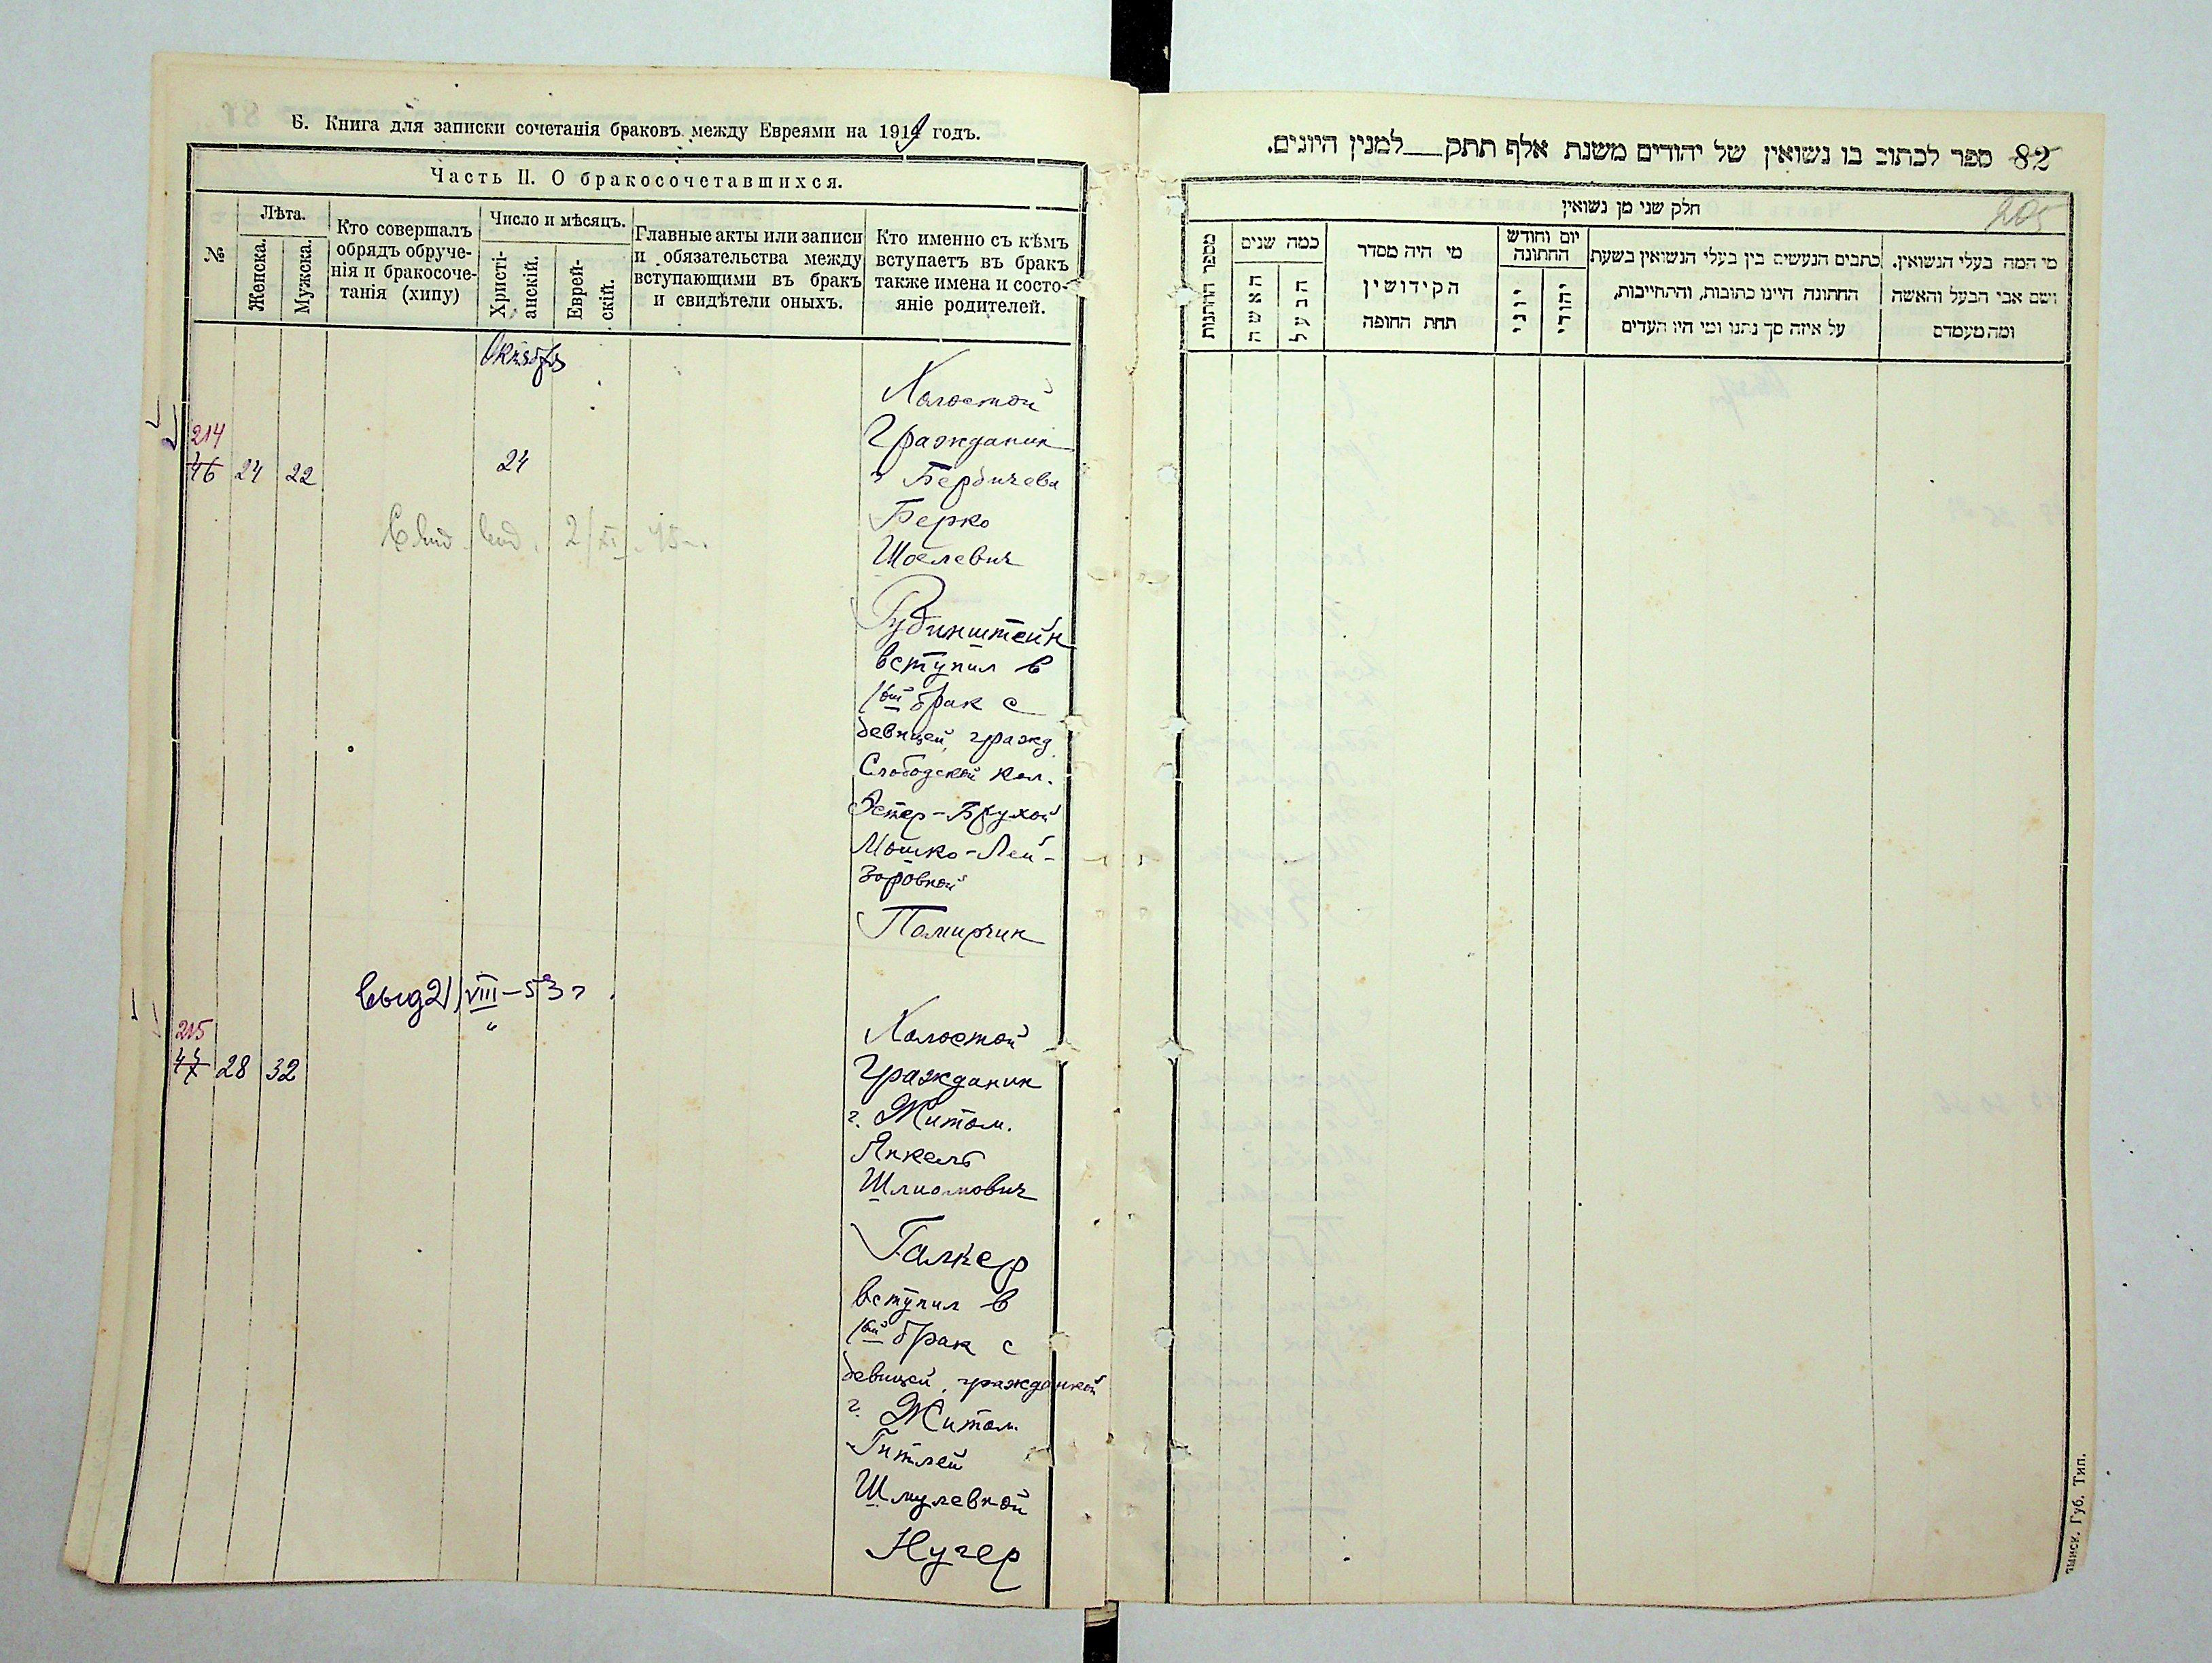 Б. Книга для записки сочетанія браковъ между Евреями на 1919 годъ.
Часть II. О бракосочетавшихся.
№
Лѣта.
Женска.
Мужска.
Кто совершалъ
обрядъ обруче-
нія и бракосоче-
танія (хипу)
Число и мѣсяцъ.
Христі-
анскій.
Еврей-
скій.
Главные акты или записи
и обязательства между
вступающими въ бракъ
и свидѣтели оныхъ.
Кто именно съ кѣмъ
вступаетъ въ бракъ
также имена и состо-
яніе родителей.
Октябрь
214
46 24 22 24
Холостой
Гражданин
г Бердичева
Берко
Шоелевич
Рубинштейн
вступил в
1ый брак с
девицей, гражд.
Слободской кол.
Эстер-Брухой
Мошко-Лей-
зоровной
Помирчик
выд 21/VIII-53 г.
"
215
47 28 32
Холостой
Гражданин
г. Житом.
Янкель
Шлиомович
Галкер
вступил в
1ый брак с
девицей, гражданкой
г. Житом.
Гитлей
Шмулевной
Нугер
82 ספר לכתוב בו נשואין של יהודים משנת אלף תתק__למנין היונים.
205
חלק שני מן נשואין
מספר החתנות
כמה שנים
האשה
הבעל
מי היה מסדר
הקידושין
תחת החופה
יום וחודש
החתונה
יוני
יהודי
כתבים הנעשים בין בעלי הנשואין בשעת
החתונה היינו כתובות, והתחייבות,
על איזה סך נתנו ומי היו העדים
מי המה בעלי הנשואין.
ושם אבי הבעל והאשה
ומה מעמדם
Губ. Тип.